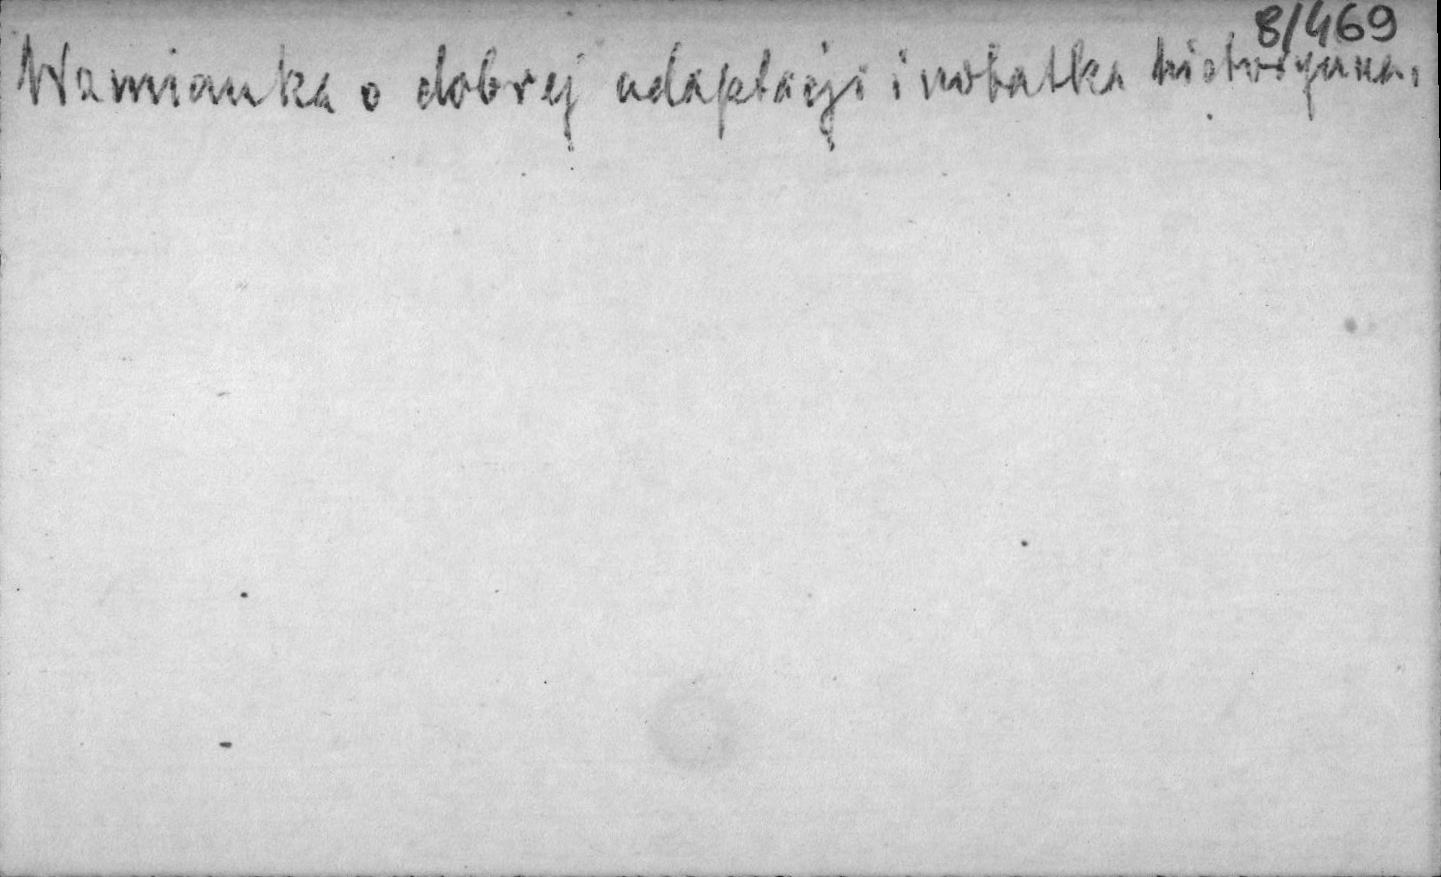 8/469
Wzmianka o dobrej adaptacji i notatka historyczna.